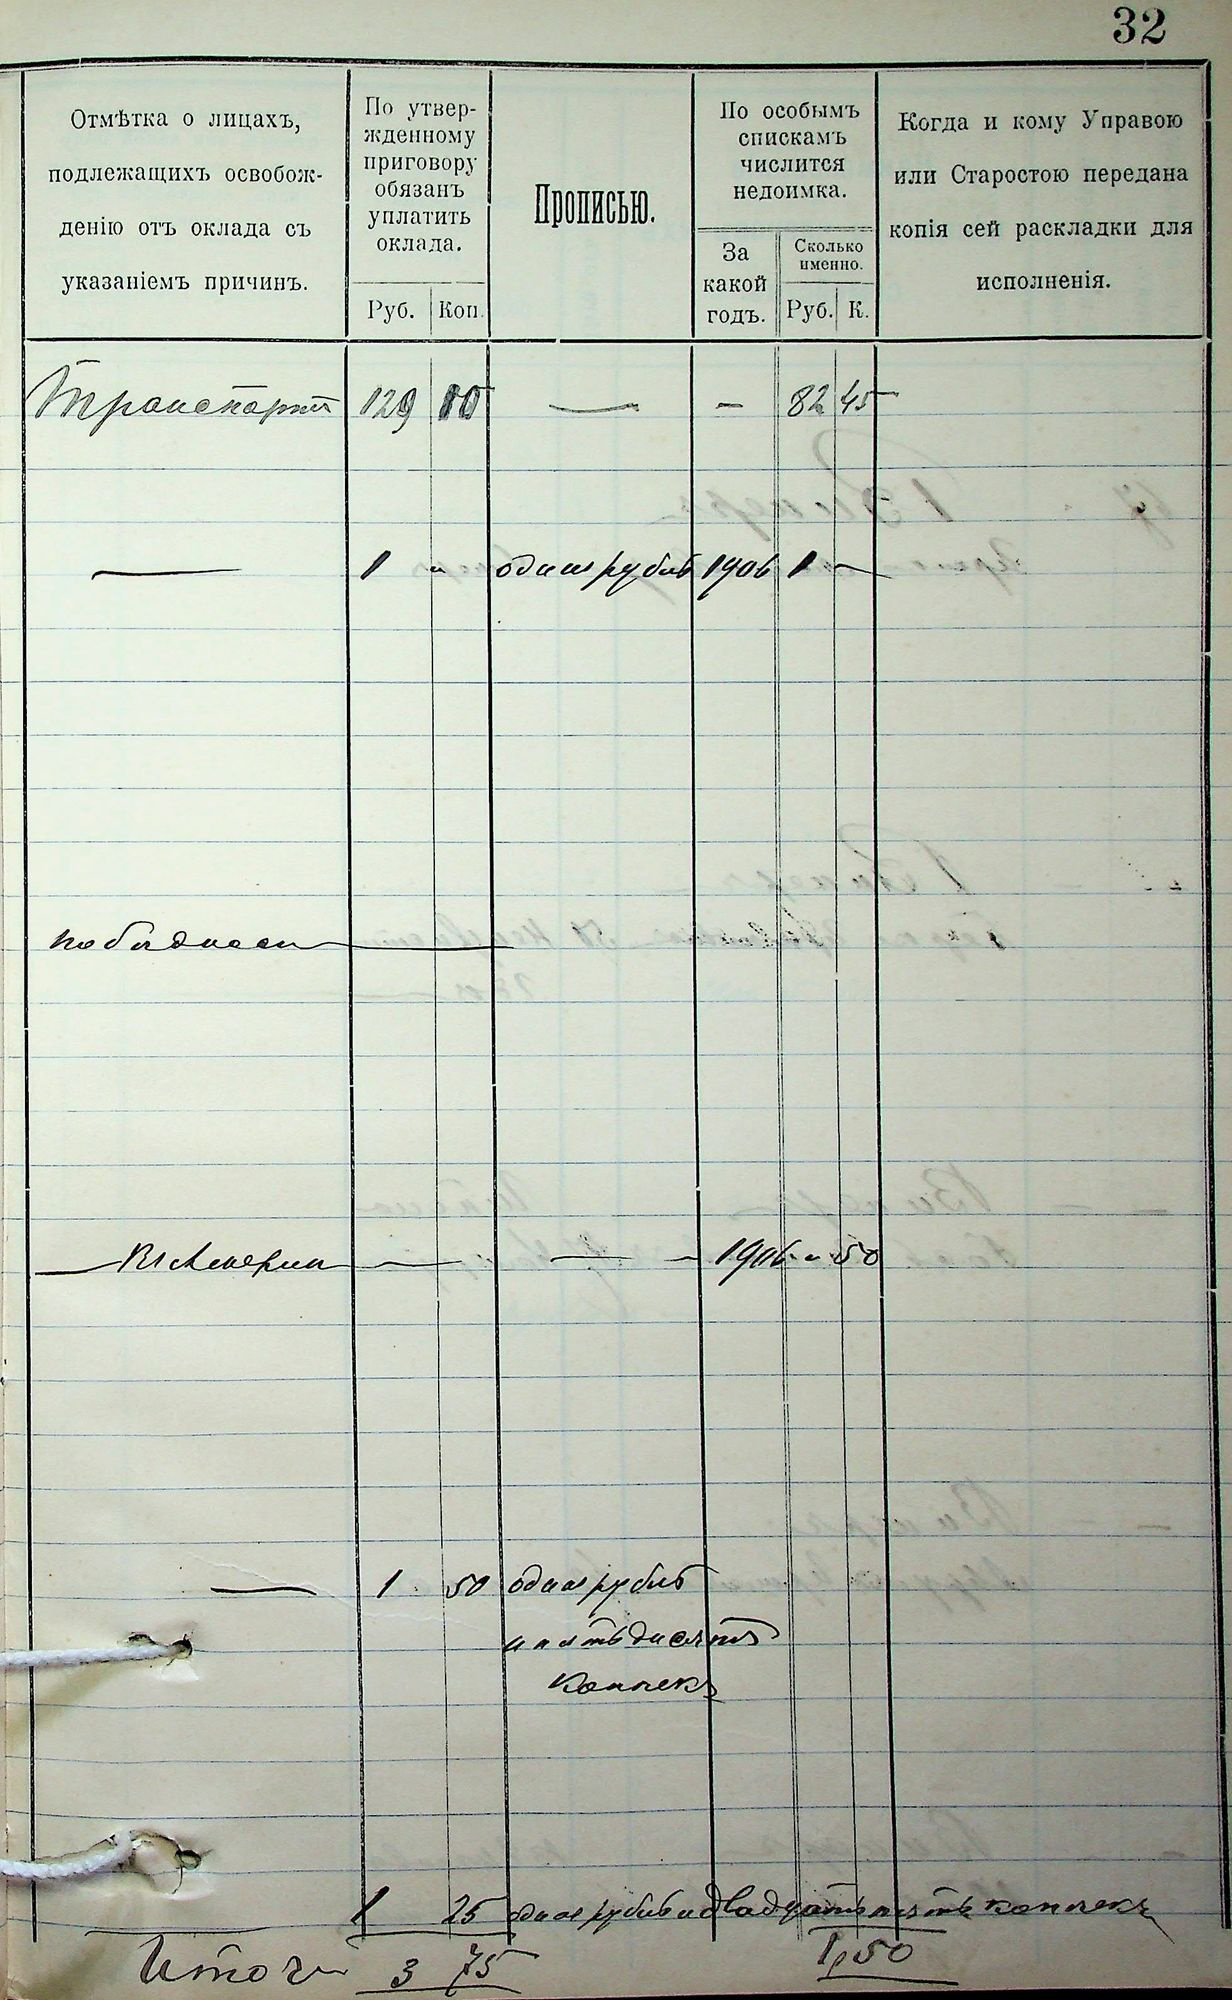 32
Отмѣтка о лицахъ,
подлежащихъ освобож-
денію отъ оклада съ
указаніемъ причинъ.
По утвер-
жденному
приговору
обязанъ
уплатить
оклада.
Руб. Коп.
Прописью.
По особымъ
спискамъ
числится
недоимка.
За
какой
годъ.
Сколько
именно.
Руб. К.
Когда и кому Управою
или Старостою передана
копія сей раскладки для
исполненія.
Транспортъ 129 10 — — 82 45
— 1 " одинъ рубль 1906 1 —
по бѣдности
— въ Америки — — 1906 " 50
— 1 50 одинъ рубль
и пятьдисятъ
копѣекъ
1 25 одинъ рубль и двадцать пять копѣекъ
Итого 3 75 1,50